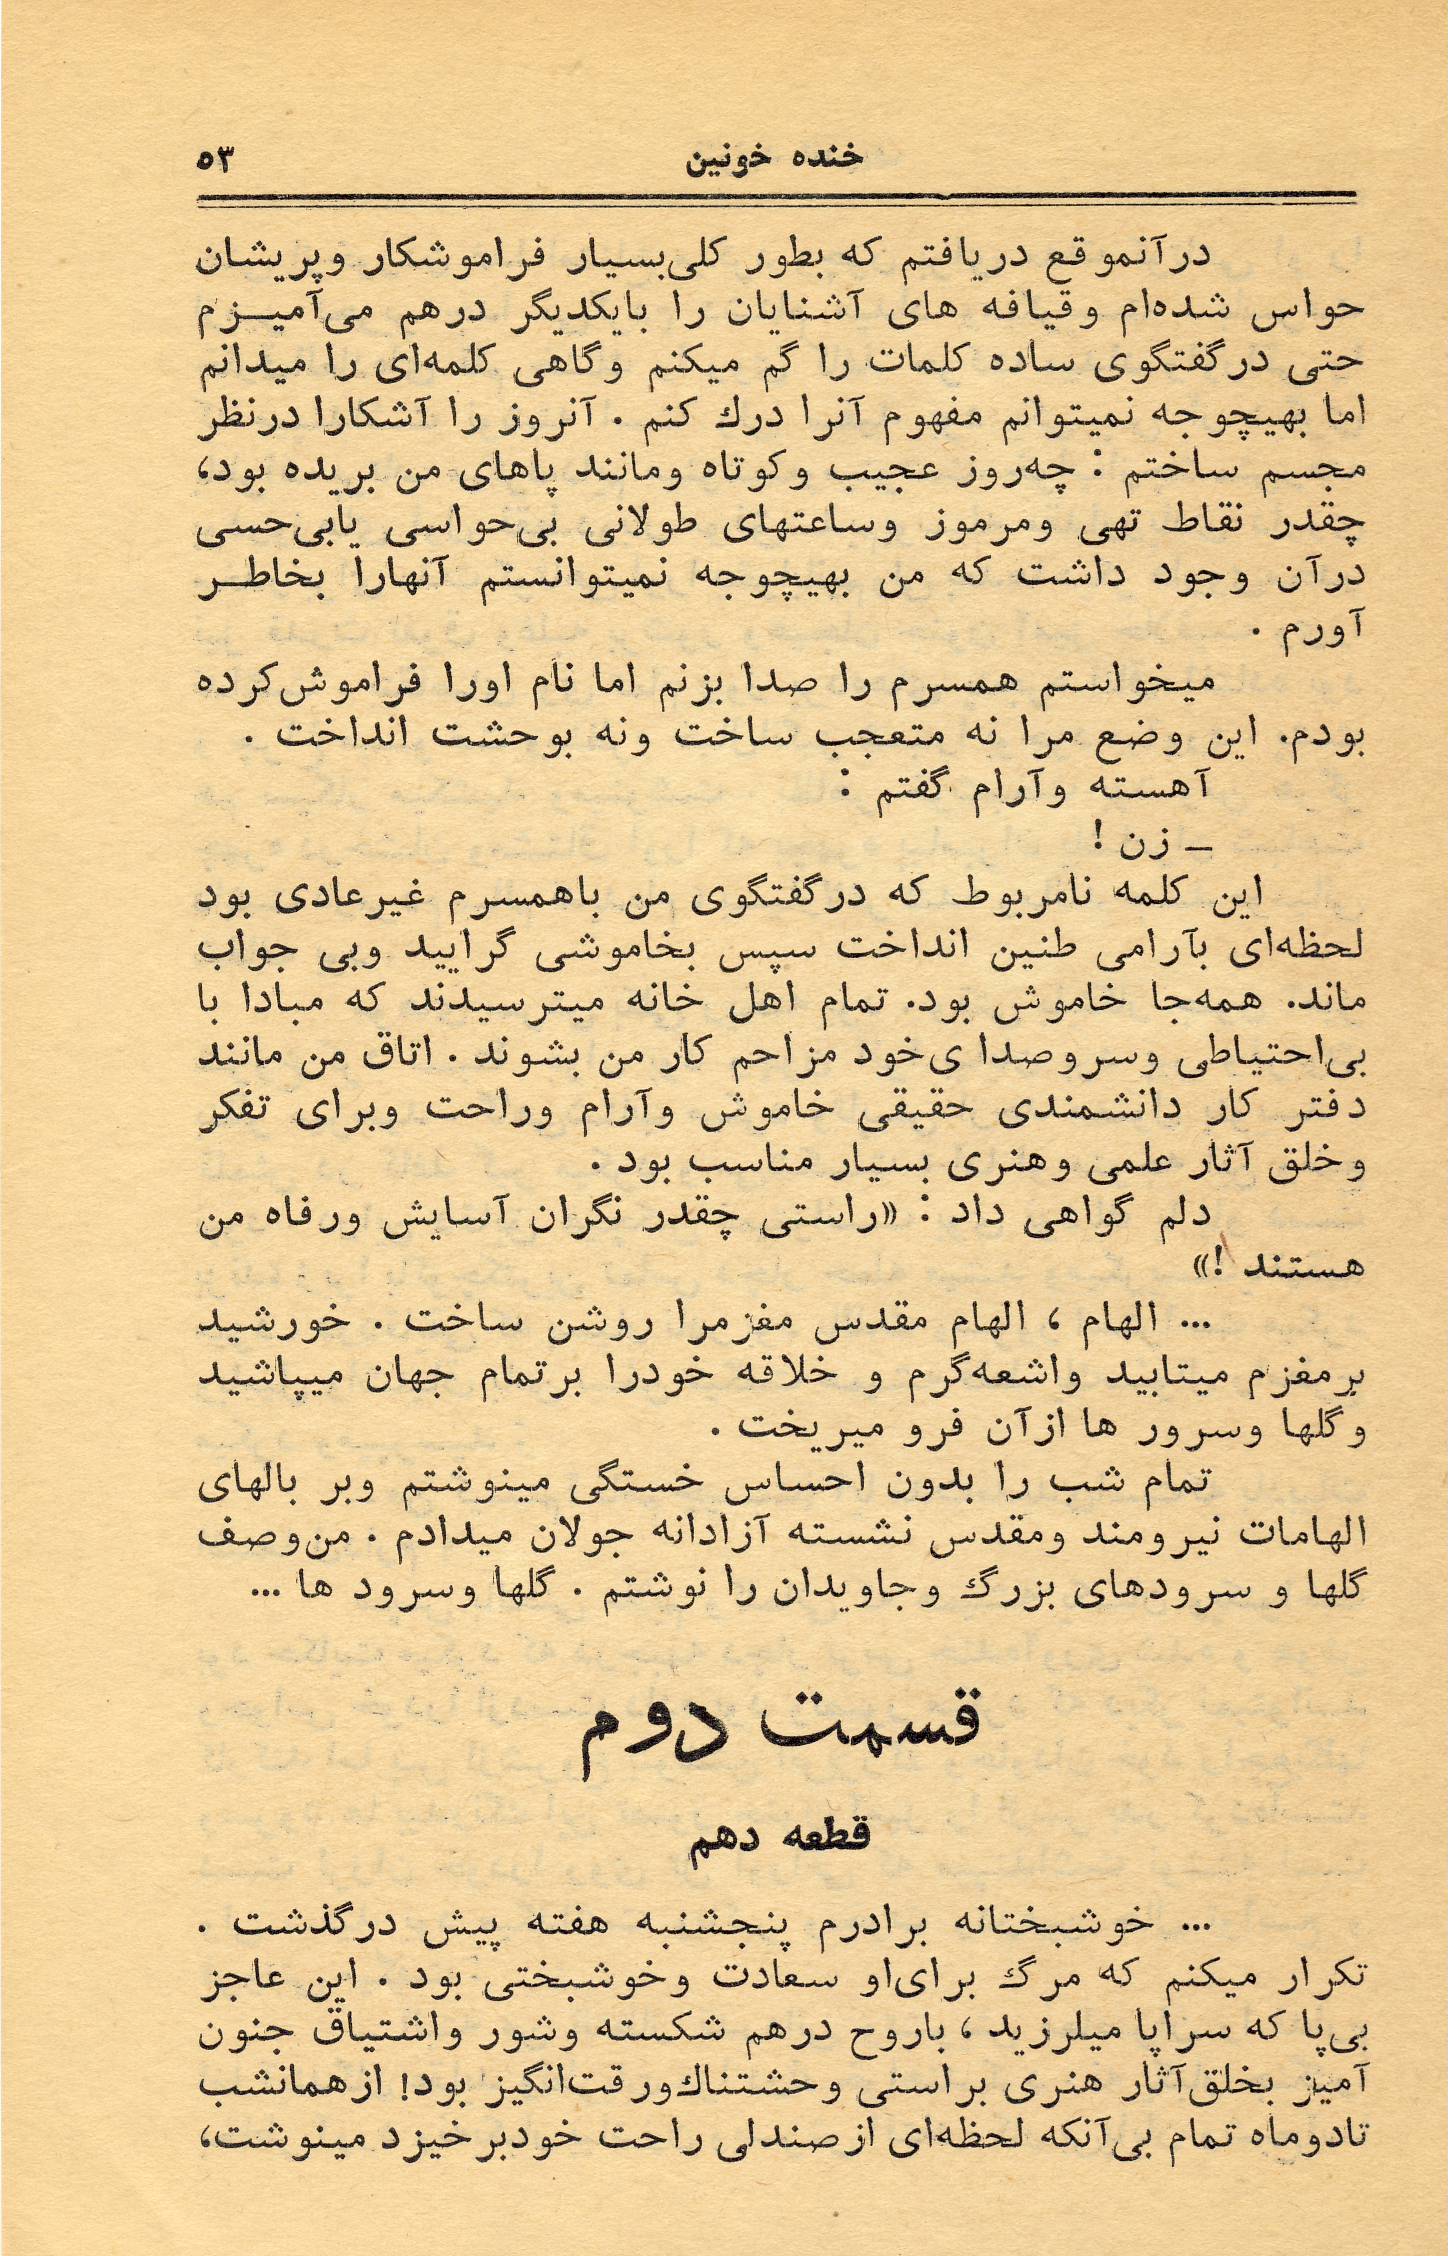 خنده خونین ۵۳
درآنموقع دریافتم که بطور کلی‌بسیار فراموشکار وپریشان
حواس شده‌ام وقیافه های آشنایان را بایکدیگر درهم می‌آمیـزم
حتی درگفتگوی ساده کلمات را گم میکنم وگاهی کلمه‌ای را میدانم
اما بهیچوجه نمیتوانم مفهوم آنرا درك کنم . آنروز را آشکارا درنظر
مجسم ساختم : چه‌روز عجیب وکوتاه ومانند پاهای من بریده بود،
چقدر نقاط تهی ومرموز وساعتهای طولانی بی‌حواسی یابی‌حسی
درآن وجود داشت که من بهیچوجه نمیتوانستم آنهارا بخاطـر
آورم .
میخواستم همسرم را صدا بزنم اما نام اورا فراموش‌کرده
بودم. این وضع مرا نه متعجب ساخت ونه بوحشت انداخت .
آهسته وآرام گفتم :
ـ زن !
این کلمه نامربوط که درگفتگوی من باهمسرم غیرعادی بود
لحظه‌ای بآرامی طنین انداخت سپس بخاموشی گرایید وبی جواب
ماند. همه‌جا خاموش بود. تمام اهل خانه میترسیدند که مبادا با
بی‌احتیاطی وسروصدا ی‌خود مزاحم کار من بشوند . اتاق من مانند
دفتر کار دانشمندی حقیقی خاموش وآرام وراحت وبرای تفکر
وخلق آثار علمی وهنری بسیار مناسب بود .
دلم گواهی داد : «راستی چقدر نگران آسایش ورفاه من
هستند !»
... الهام ، الهام مقدس مغزمرا روشن ساخت . خورشید
برمغزم میتابید واشعه‌گرم و خلاقه خودرا برتمام جهان میپاشید
وگلها وسرور ها ازآن فرو میریخت .
تمام شب را بدون احساس خستگی مینوشتم وبر بالهای
الهامات نیرومند ومقدس نشسته آزادانه جولان میدادم . من‌وصف
گلها و سرودهای بزرگ وجاویدان را نوشتم . گلها وسرود ها ...
قسمت دوم
قطعه دهم
... خوشبختانه برادرم پنجشنبه هفته پیش درگذشت .
تکرار میکنم که مرگ برای‌او سعادت وخوشبختی بود . این عاجز
بی‌پا که سراپا میلرزید ، باروح درهم شکسته وشور واشتیاق جنون
آمیز بخلق‌آثار هنری براستی وحشتناك‌ورقت‌انگیز بود! ازهمانشب
تادوماه تمام بی‌آنکه لحظه‌ای ازصندلی راحت خودبرخیزد مینوشت،